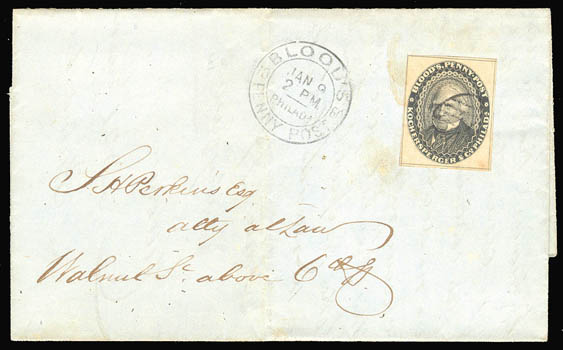 BLOOD'S PENNY POST
JAN 9
2 PM
PHILADA
BLOOD'S, PENNY-POST
KOCHERSPERGER & CO. PHILADA
S. H. Perkins Esq
atty at Law
Walnut St. above 6th St